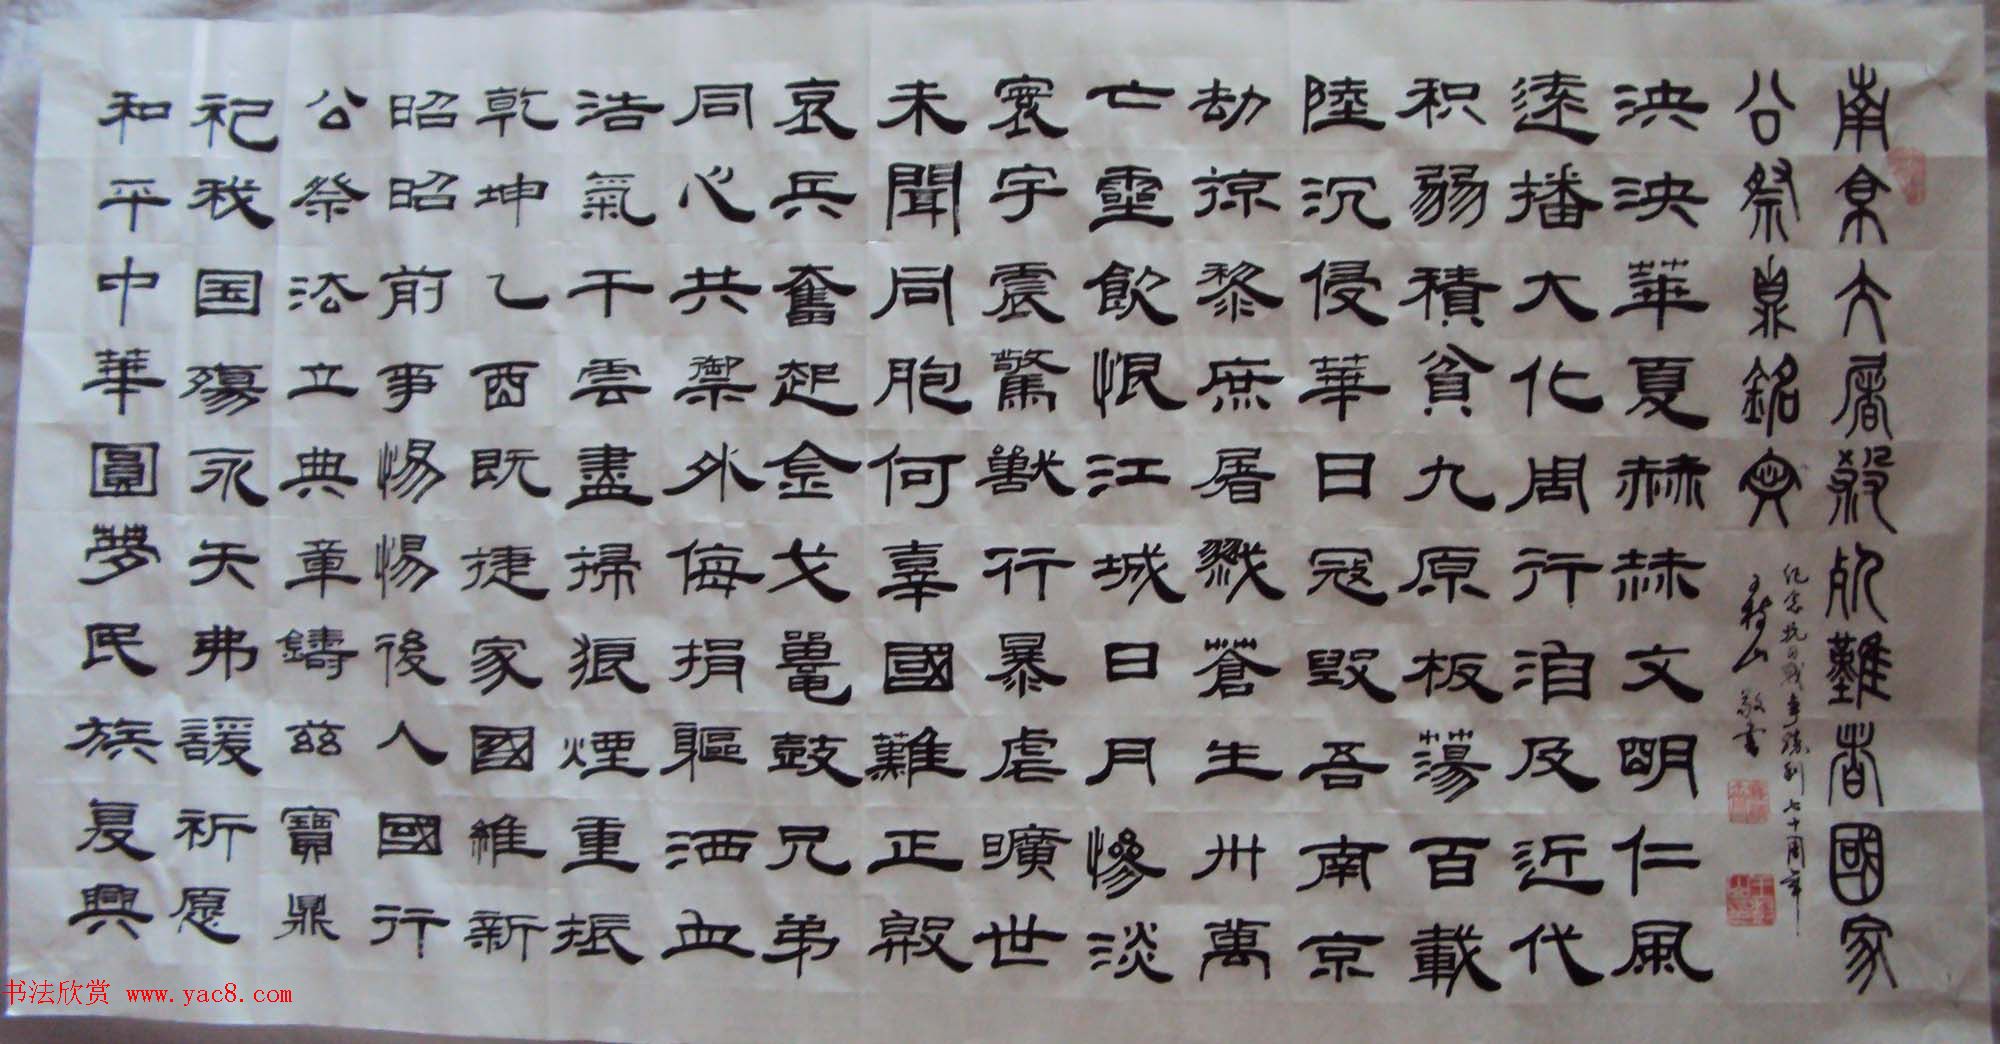 南京大屠殺死難者國家
公祭鼎銘文
纪念抗日戰爭勝利七十周年
敬書
泱泱華夏赫赫文明仁風
遠播大化周行洎及近代
积弱積貧九原板蕩百載
陸沉侵華日寇毀吾南京
劫掠黎庶屠戮蒼生卅萬
亡靈飲恨江城日月慘淡
寰宇震驚獸行暴虐曠世
未聞同胞何辜國難正殷
哀兵奮起金戈鼉鼓兄弟
同心共禦外侮捐軀洒血
浩氣干雲盡掃狼煙重振
乾坤乙酉既捷家國維新
昭昭前事惕惕後人國行
公祭法立典章鑄兹寶鼎
祀我国殤永矢弗諼祈愿
和平中華圓夢民族复興
书法欣赏 www.yac8.com